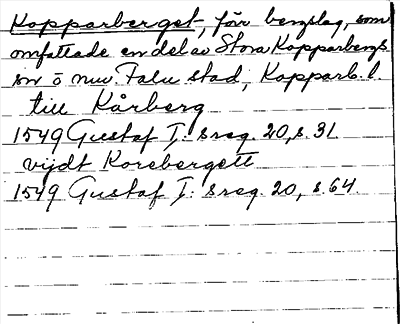 Kopparberget, förr bergslag, som
omfattade en del av Stora Kopparbergs
sn o nuv. Falu stad, Kopparb. l.
till Kårberg
1549 Gustaf I:s reg. 20, s. 31
vijdt Korebergett
1549 Gustaf I:s reg. 20, s. 64.